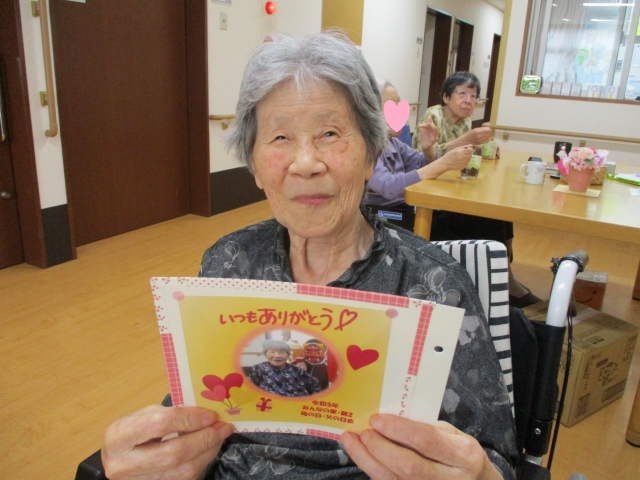 いつもありがとう
令和5年
みんなの家・蕨2
母の日・父の日会